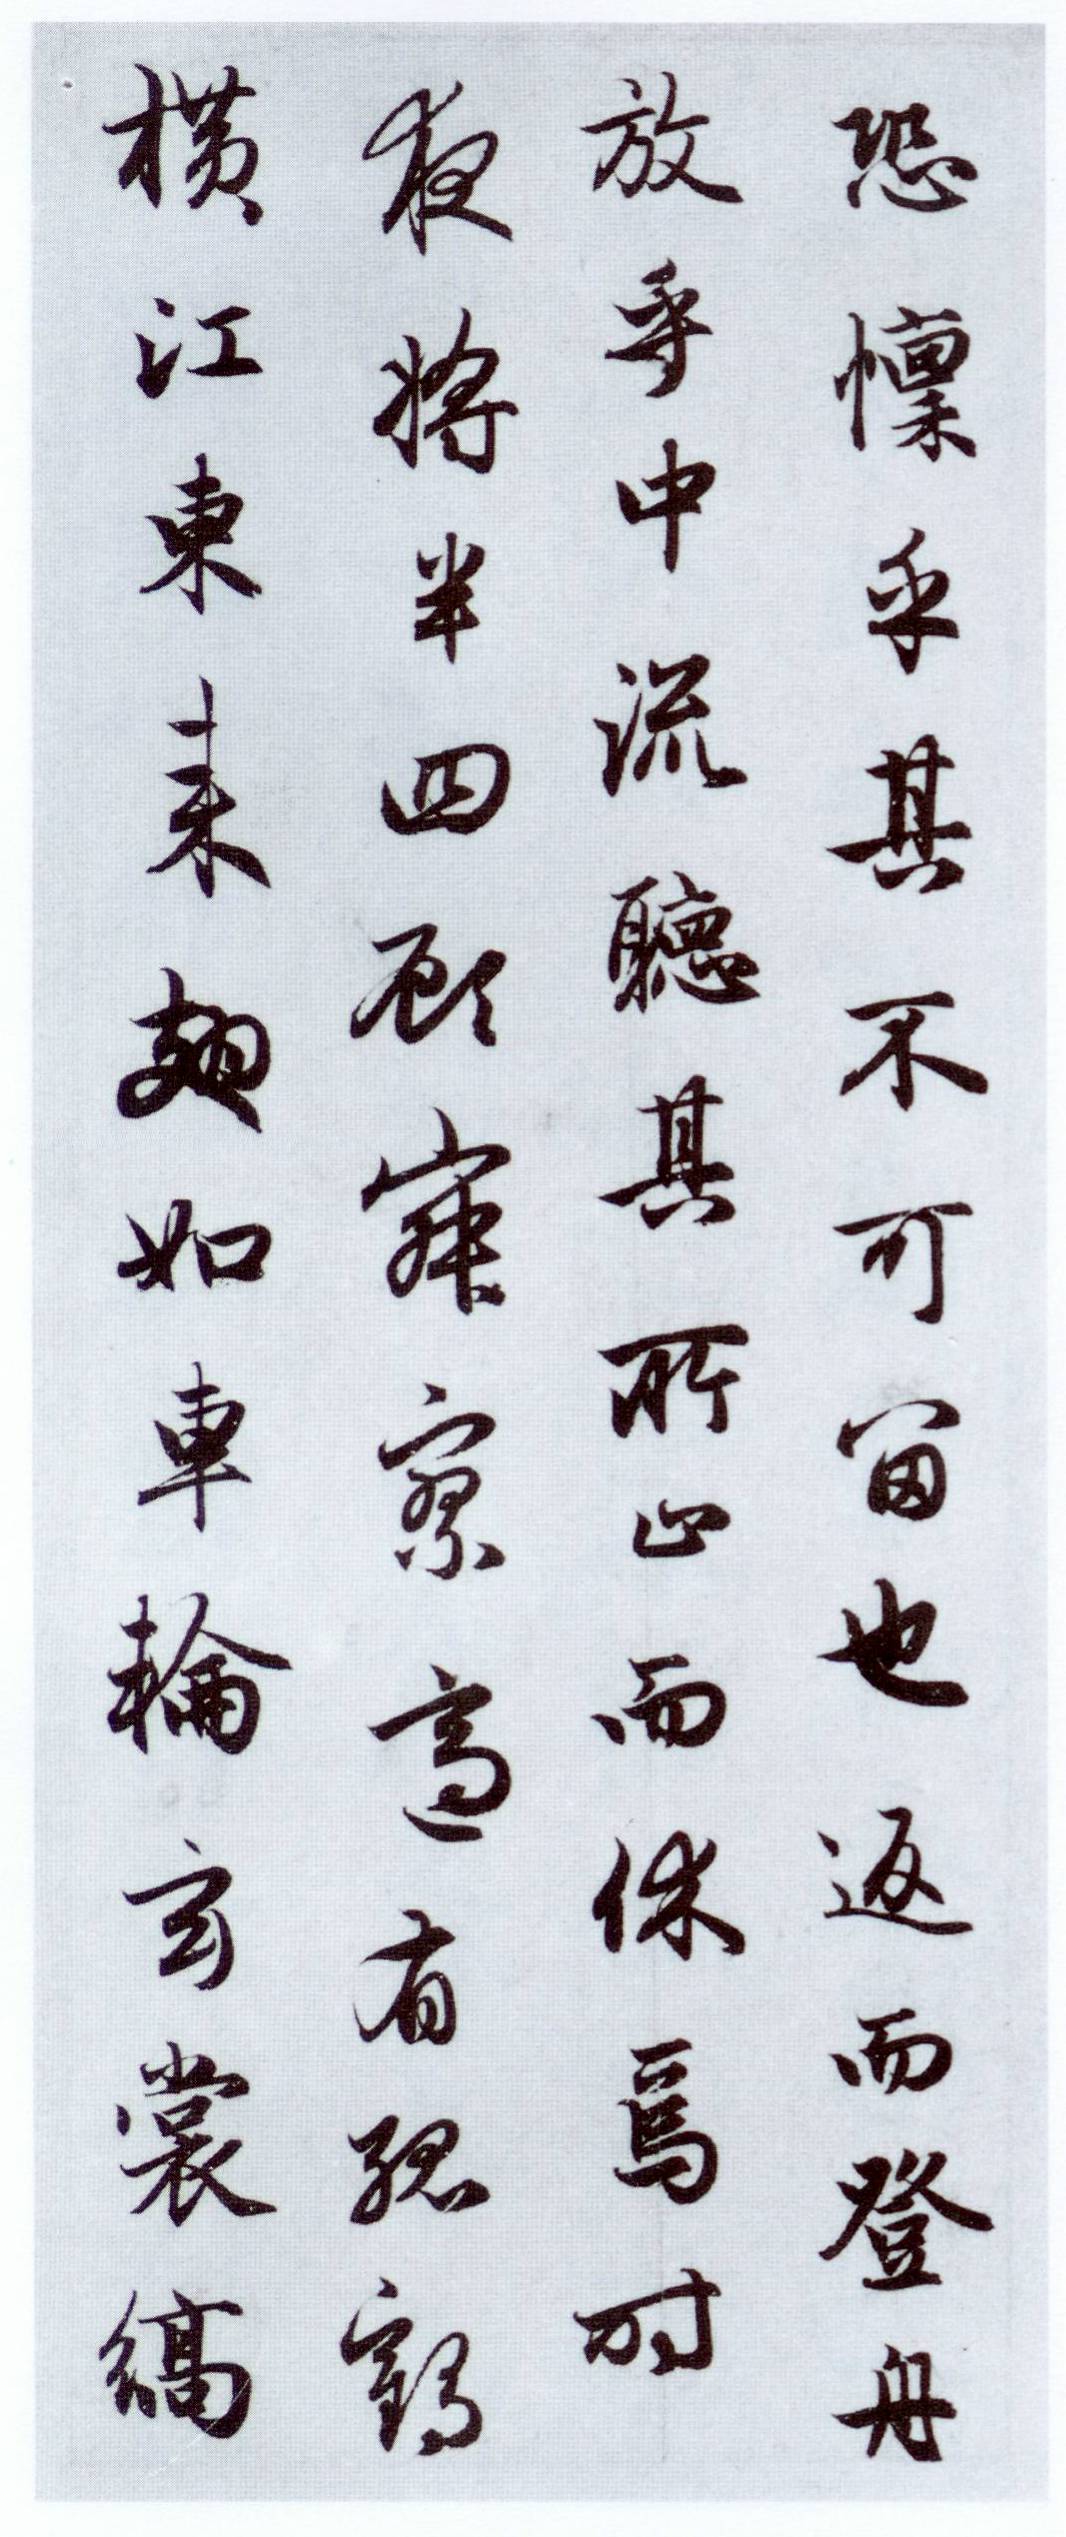 恐懍乎其不可留也返而登舟
放乎中流聽其所止而休焉时
夜将半四顾寂寥適有孤鶴
横江東来翅如車輪玄裳縞